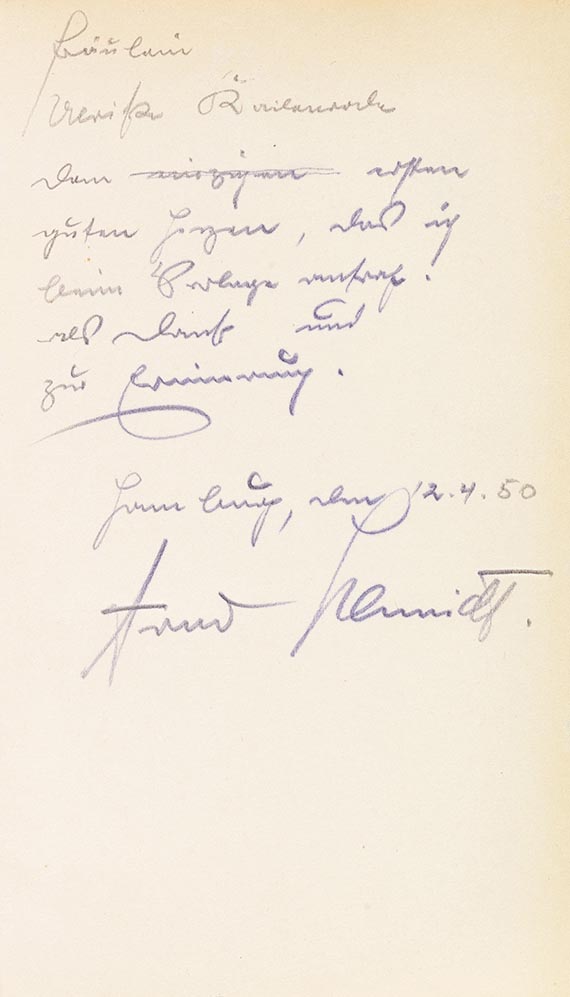 Fräulein
Ulrike
dem ~~einzigen~~ ersten
guten Herzen, das ich
beim Verlage antraf:
als Dank und
zur Erinnerung.
Hamburg, den 12.4.50
Arno Schmidt.